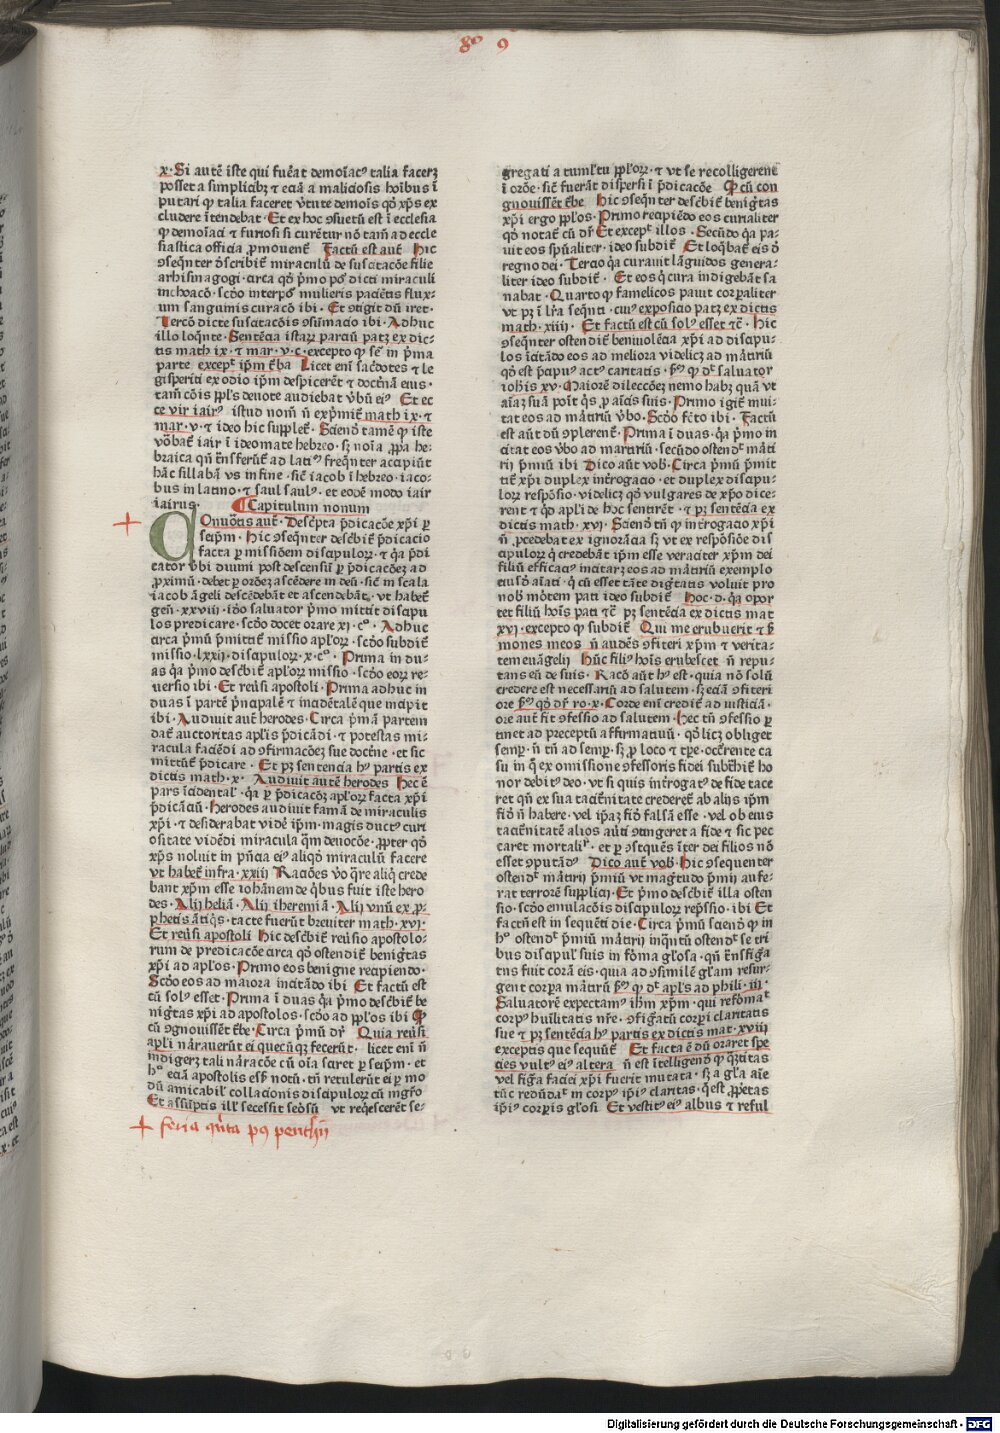 8us 9
x. Si autē iste qui fuẽat demoĩacꝰ talia facerꝫ
posset a simplicibꝫ ⁊ ecia a maliciosis hoibus ĩ
putari ꝙ talia faceret v̓tute demois qđ xp̄s ex
cludere ĩtendebat. Et ex hoc ꝯsuetū est ĩ ecclesia
ꝙ demoĩaci ⁊ furiosi si curẽtur nō tam̄ ad eccle
siastica officia ꝓmouent̄ Factū est aut̄ Hic
ꝯseqn̄ter describit̄ miraculū de suscitacōe filie
archisinagogi. circa qđ p̄mo poṡ dicti miraculi
inchoacō. scd̄o interpoṡ mulieris paciẽtis flux-
um sanguinis curacō ibi. Et ꝯtigit dū iret.
Tercō dicte suscitacōis ꝯsūmacio ibi. Adhuc
illo loqn̄te. Sentẽcia istarꝝ parciū patꝫ ex dic-
tis math ix. ⁊ mar. v. c. excepto ꝙ se in p̄ma
parte excepᵗ ip̄m t̄ba Licet eni sac̓dotes ⁊ le
gisperiti ex odio ip̄m despicerẽt ⁊ doct̓nā eius.
tam̄ cōis ppl̄s deuote audiebat v̓bū eiꝰ. Et ec
ce vir iairꝰ istud nom̄ n̄ exp̓mit̄ math ix. ⁊
mar. v. ⁊ ideo hic supplet̄. Sciend̄ tamē ꝙ iste
vōbat̄ iair ĩ ideomate hebreo. sꝫ noīa ꝓpa he-
braica qn̄ t̄nsferūt̄ ad latiᵒ freqn̄ter acapiūt
hāc sillabā vs in fine. sic̄ iacob ĩ hebreo. iaco-
bus in latino. ⁊ saul saulꝰ. et eodē modo iair
iairus. Capitulum nonum
COnuōtis aut̄. Descp̄ta p̄dicacōe xp̄i per
seip̄m. Hic ꝯseqn̄ter describit̄ p̄dicacio
facta per missiōem discipulorꝝ. ⁊ qa p̄di
cator v̓bi diuini post descensū per p̄dicacōeꝫ ad
ꝓximū. debet per orōeꝫ ascēdere in deū. sic̄ in scala
iacob āgeli descēdebāt et ascendebāt. vt habet̄
gen̄. xxviij. iđo saluator p̄mo mittit discipu
los predicare. scd̄o docet orare xj. cᵒ. Adhuc
circa p̄mū p̄mittit̄ missio apl̄orꝝ. scd̄o subdit̄
missio. lxxij. discipulorꝝ. x. cᵒ. Prima in du-
as qa p̄mo describit̄ apl̄orꝝ missio. scd̄o eorꝝ re-
uersio ibi. Et reūsi apostoli. Prima adhuc in
duas ĩ partē p̄ncipalē ⁊ incidētalē que incipit
ibi. Audiuit aut̄ herodes. Circa p̄mā partem
dat̄ auctoritas apl̄is p̄dicādi. ⁊ potestas mi-
racula faciēdi ad ꝯfirmacōeꝫ sue doct̓ne. et sic
mittūt̄ p̄dicare. Et pꝫ sentencia hꝰ partis ex
dictis math. x. Audiuit autē herodes Hec ē
pars ĩcidentaľ. qa per p̄dicacōeꝫ apl̄orꝝ facta xp̄i
p̄dicāciū. Herodes audiuit famā de miraculis
xp̄i. ⁊ desiderabat videē ip̄m. magis ductꝰ curi
ositate vidēdi miracula qm̄ deuocōe. ꝓpter qđ
xp̄s noluit in p̄ncia eiꝰ aliqđ miraculū facere
vt habet̄ infra. xxiij Racōes v̓o qre aliq̄ crede
bant xp̄m esse iohānem de qͥbus fuit iste hero
des. Alij heliā. Alij iheremiā. Alij vnū ex p̱-
phetis ātiqͥs. tacte fuerūt breuiter math. xvj.
Et reūsi apostoli Hic describit̄ reūsio apostolo-
rum de predicacōe circa qđ ostendit̄ benigtas
xp̄i ad apl̄os. Primo eos benigne recipiendo.
Scd̄o eos ad maiora incitādo ibi Et factū est
cū solꝰ esset. Prima ĩ duas qa p̄mo describit̄ be
nigtas xp̄i ad apostolos. scd̄o ad ppl̄os ibi Qḋ
cū ꝯgnouissēt t̄be. Circa p̄mū dr̄ Quia reūsi
apl̄i narrauerūt ei quecūqꝫ fecerūt. licet eni n̄
indigerꝫ tali narracōe cū oīa sciret per seip̄m. et
hᵒ eciā apostolis esṡ notū. tn̄ retulerūt ei per mo
dū amicabiľ collacionis discipulorꝝ cū mgr̄o
Et assūptis illꝭ secessit seorsū vt reqͥescerēt se-
+ feria qūta pꝰ penthē
gregati a tumľtu ppl̄orꝝ. ⁊ vt se recolligerent
ĩ orōe. sic̄ fuerāt dispersi ĩ p̄dicacōe Qḋ cū con
gnouissēt t̄be Hic ꝯseqn̄ter describit̄ benigtas
xp̄i ergo ppl̄os. Primo recipiēdo eos curialiter
qđ notat̄ cū dr̄ Et excepᵗ illos. Secūdo qa pa-
uit eos spūaliter. ideo subdit̄ Et loqͣbat̄ eis đ
regno dei. Tercio qa curauit lāguidos genera-
liter ideo subdit̄. Et eos q cura indigebāt sa
nabat. Quarto ꝙ famelicos pauit corꝑaliter
vt pꝫ ĩ lr̄a seqn̄ti. cuiꝰ exposicio patꝫ ex dictis
math. xiiij. Et factū est cū solꝰ esset ⁊c̄. Hic
ꝯseqn̄ter ostendit̄ beniuolēcia xp̄i ad discipu-
los ĩcitādo eos ad meliora videlicꝫ ad mr̄tiriū
qđ est p̄cipuꝰ actꝰ caritatis. sꝫ ꝙ dᵗ saluator
ioh̄is xv. Maiorē dileccōeꝫ nemo habꝫ quā vt
aīaꝫ suā poīt qͥs ꝓ aīcis suis. Primo igit̄ inui-
tat eos ad mr̄tiriū v̓bo. Scd̄o fc̄to ibi. Factū
est aūt dū ꝯplerent̄. Prima ĩ duas. qa p̄mo in
citat eos v̓bo ad mr̄tiriū. secūdo ostendᵗ mr̄ti
rij p̄miū ibi Dico aūt vob. Circa p̄mū p̄mit
tit̄ xp̄i duplex int̓rogacio. et duplex discipu-
lorꝝ resp̄osio. videlicꝫ qđ vulgares de xp̄o dice-
rent ⁊ qđ apl̄i de hoc sentirēt. ⁊ pꝫ sentēcia ex
dictis math. xvj. Sciend̄ tn̄ ꝙ int̓rogacio xp̄i
n̄ ꝓcedebat ex ignorācia sꝫ vt ex resp̄osiōe dis
cipulorꝝ q credebāt ip̄m esse veraciter xp̄m dei
filiū efficaciꝰ incitarꝫ eos ad mr̄tiriū exemplo
eiusđ aīati. q cū esset tāte digtatis voluit pro
nob mōtem pati ideo subdit̄ Hoc. d. qa opor
tet filiū hoīs pati ⁊c̄ pꝫ sentēcia ex dictis mat
xvj. excepto ꝙ subdit̄ Qui me erubuerit ⁊ ẜ
mones meos n̄ audēs ꝯfiteri xp̄m ⁊ verita-
tem euāgelij Hūc filiꝰ hoīs erubescet n̄ repu-
tans eū de suis. Racō aūt hꝰ est. quia nō solū
credere est necessariū ad salutem. sꝫ eciā ꝯfiteri
ore ẜꝫ qđ dr̄ ro. x. Corde eni credit̄ ad iusticiā.
ore aut̄ fit ꝯfessio ad salutem. Hec tn̄ ꝯfessio per
tinet ad preceptū affirmatiuū. qđ licꝫ obliget
semꝑ. n̄ tn̄ ad semꝑ. sꝫ ꝓ loco ⁊ tp̄e. occ̓rente ca
su in q ex omissione ꝯfessoris fidei subt̓hit̄ ho
nor debitꝰ deo. vt si quis int̓rogatꝰ de fide tace
ret qn̄ ex sua taciturnitate crederet̄ ab alijs ip̄m
fiđ n̄ habere. vel ip̄aꝫ fiđ falsā esse. vel ob eius
taciturnitatē alios aūti ꝯtingeret a fide ⁊ sic pec
caret mortaliᵗ. et per ꝯseqūēs ĩter dei filios nō
esset ꝯputādꝰ Dico aut̄ vob. Hic ꝯsequenter
ostendᵗ mr̄tirij p̄miū vt magtudo p̄mij aufe-
rat terrorē supplicij. Et p̄mo describit̄ illa osten
sio. scd̄o emulacōis discipulorꝝ rep̄ssio. ibi Et
factū est in sequēti die. Circa p̄mū sciend̄ ꝙ in
hᵒ ostendᵗ p̄miū mr̄tirij inqūtū ostendᵗ se tri
bus discipuľ suis in forma gľosa. qn̄ t̄nsfigͣa
tus fuit corā eis. quia ad ꝯsimilē gl̄am resur-
gent corpora mr̄tirū ẜꝫ ꝙ dᵗ apl̄s ad phili. iij.
Saluatorē expectamꝰ ih̄m xp̄m. qui reformaᵗ
corpꝰ huīlitatis nr̄e. ꝯfigͣtū corp̄i claritatis
sue ⁊ pꝫ sentēcia hꝰ partis ex dictis mat. xviij
exceptis que sequūt̄ Et facta ē dū oraret spe
cies vultꝰ eiꝰ altera n̄ est ĩtelligend̄ ꝙ qͣtitas
vel figͣa faciei xp̄i fuerit mutata. sꝫ a gl̄a aīe
tūc redūdaᵗ in corpꝰ ip̄iꝰ claritas. q̄ est ꝓp̄etas
ip̄iꝰ corꝑis gľosi. Et vestitꝰ eiꝰ albus ⁊ reful
Digitalisierung gefördert durch die Deutsche Forschungsgemeinschaft - DFG